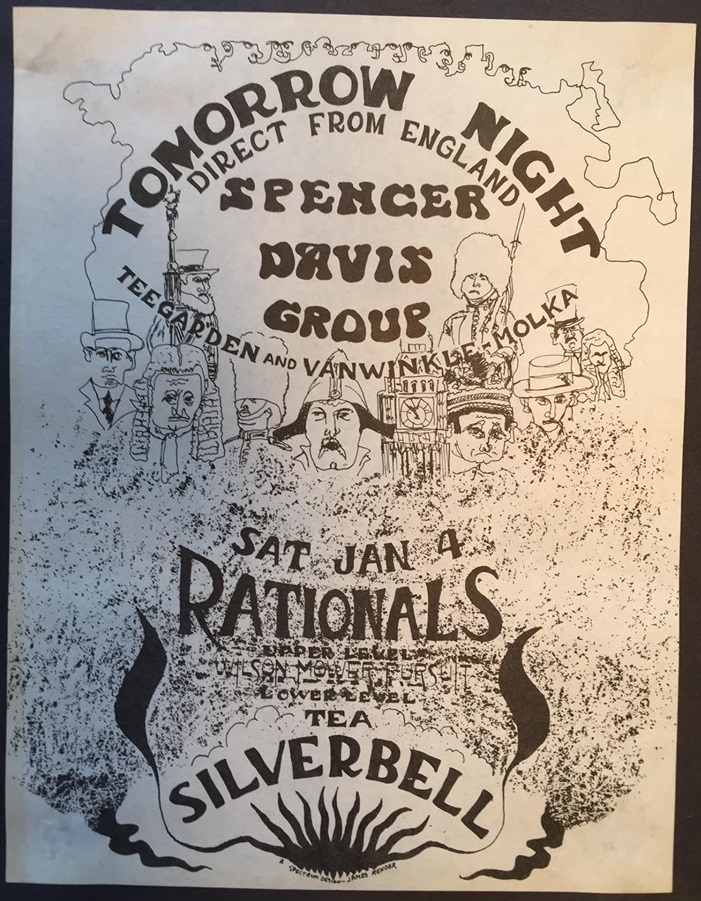 TOMORROW NIGHT
DIRECT FROM ENGLAND
SPENCER
DAVIS
GROUP
TEEGARDEN AND VANWINKLE-MOLKA
SAT JAN 4
RATIONALS
UPPER LEVEL
WILSON MOWER PURSUIT
LOWER LEVEL
TEA
SILVERBELL
A SPECTRUM DESIGN-JAMES RENDER